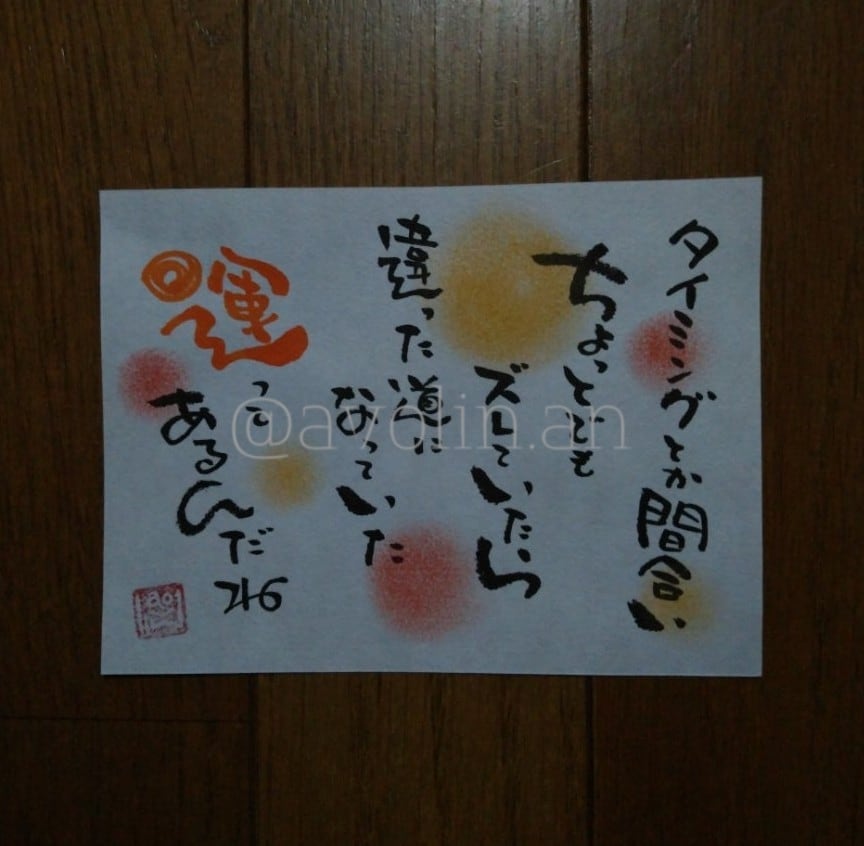 タイミングとか間合い
ちょっとでも
ズレていたら
違った道に
なっていた
運って
あるんだ
@ayolin.an